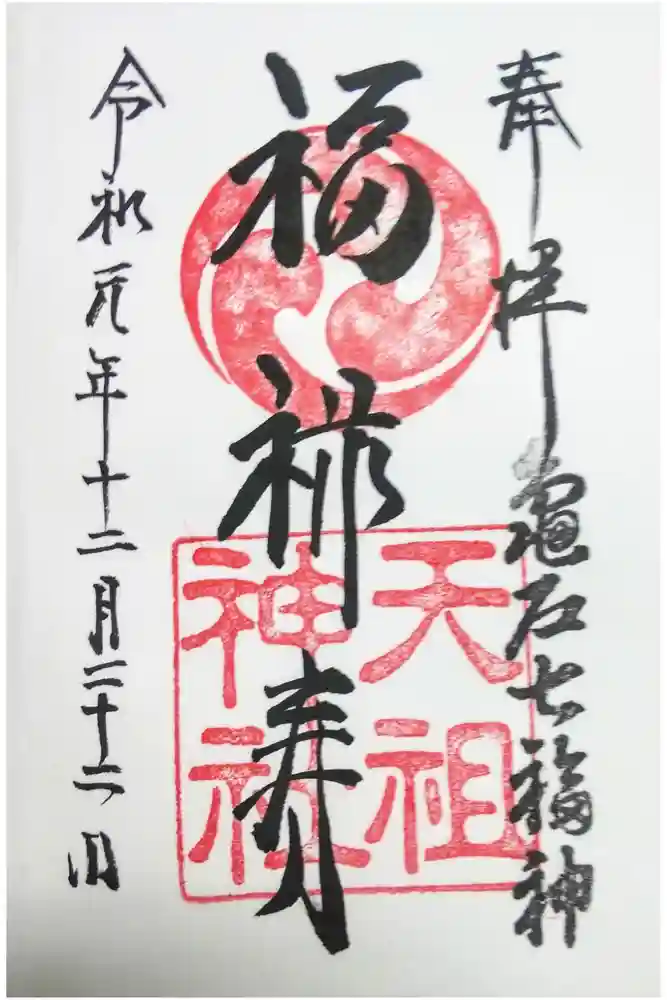 奉拝 亀戸七福神
福禄寿
天祖
神社
令和元年十二月二十二日